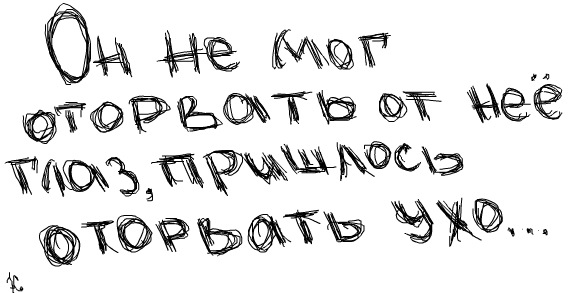 Он не мог
оторвать от неё
глаз, пришлось
оторвать ухо...